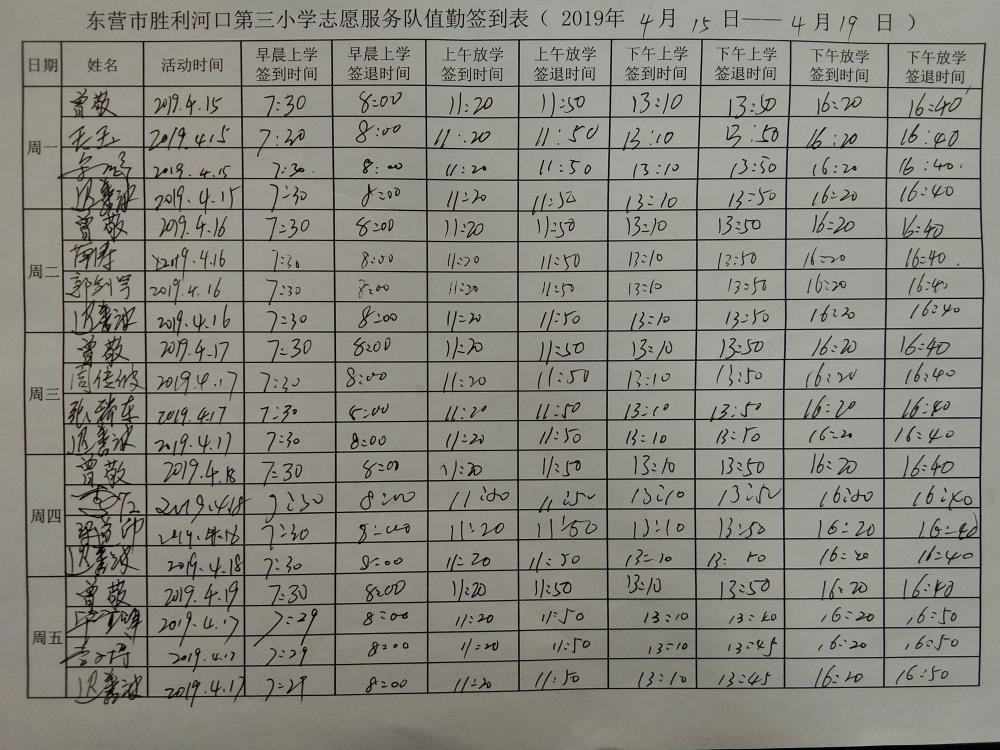 东营市胜利河口第三小学志愿服务队值勤签到表（ 2019年 4 月 15 日—— 4 月 19 日 ）
日期 姓名 活动时间 早晨上学签到时间 早晨上学签退时间 上午放学签到时间 上午放学签退时间 下午上学签到时间 下午上学签退时间 下午放学签到时间 下午放学签退时间
周一 曾敬 2019.4.15 7:30 8:00 11:20 11:50 13:10 13:50 16:20 16:40
2019.4.15 7:30 8:00 11:20 11:50 13:10 13:50 16:20 16:40
2019.4.15 7:30 8:00 11:20 11:50 13:10 13:50 16:20 16:40
2019.4.15 7:30 8:00 11:20 11:50 13:10 13:50 16:20 16:40
周二 曾敬 2019.4.16 7:30 8:00 11:20 11:50 13:10 13:50 16:20 16:40
2019.4.16 7:30 8:00 11:20 11:50 13:10 13:50 16:20 16:40
2019.4.16 7:30 8:00 11:20 11:50 13:10 13:50 16:20 16:40
2019.4.16 7:30 8:00 11:20 11:50 13:10 13:50 16:20 16:40
周三 曾敬 2019.4.17 7:30 8:00 11:20 11:50 13:10 13:50 16:20 16:40
2019.4.17 7:30 8:00 11:20 11:50 13:10 13:50 16:20 16:40
2019.4.17 7:30 8:00 11:20 11:50 13:10 13:50 16:20 16:40
2019.4.17 7:30 8:00 11:20 11:50 13:10 13:50 16:20 16:40
周四 曾敬 2019.4.18 7:30 8:00 11:20 11:50 13:10 13:50 16:20 16:40
2019.4.18 7:30 8:00 11:50 13:10 13:50 16:40
7:30 8:00 11:20 11:50 13:10 13:50 16:20 16:40
2019.4.18 7:30 8:00 11:20 11:50 13:10 13:50 16:20 16:40
周五 曾敬 2019.4.19 7:30 8:00 11:20 11:50 13:10 13:50 16:20 16:40
2019.4.17 7:29 8:00 11:20 11:50 13:10 13:40 16:20 16:50
2019.4.17 7:29 8:00 11:20 11:50 13:10 13:45 16:20 16:50
2019.4.17 7:29 8:00 11:20 11:50 13:10 13:45 16:20 16:50